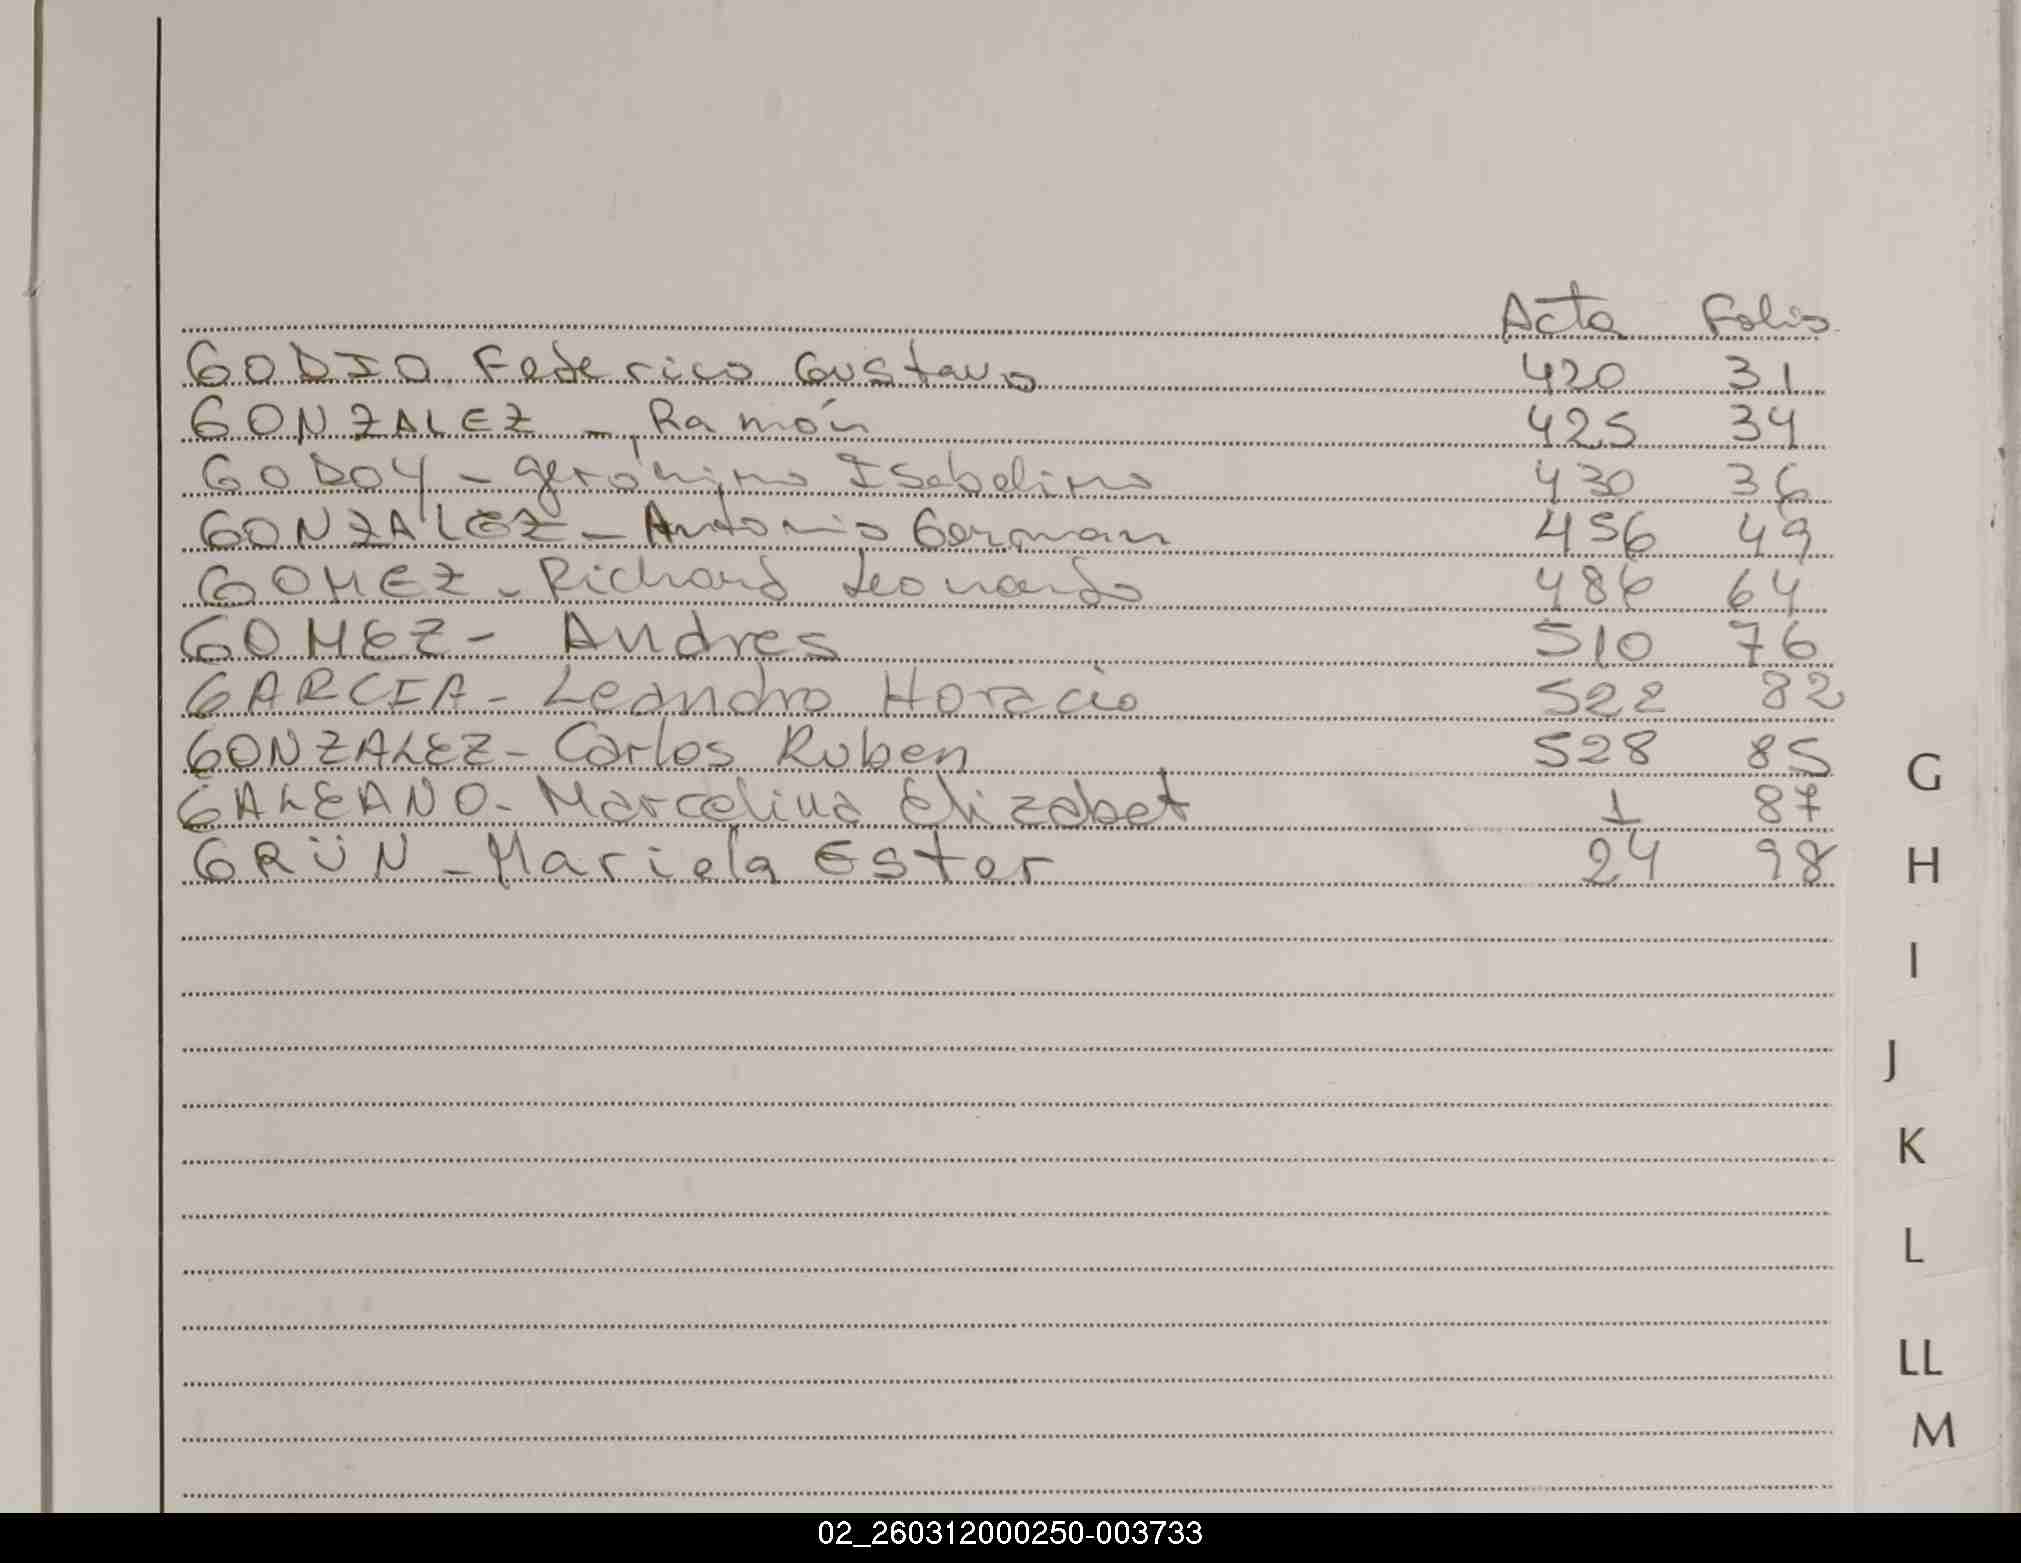 Acta Folio
GODIO Federico Gustavo 420 31
GONZALEZ - Ramón 425 34
GODOY - Gerónimo Isabelino 430 36
GONZALEZ - Antonio German 456 49
GOMEZ - Richard Leonardo 486 64
GOMEZ - Andres 510 76
GARCIA - Leandro Horacio 522 82
GONZALEZ - Carlos Ruben 528 85
GALEANO - Marcelina Elizabet 1 87
GRÜN - Mariela Ester 24 98
G
H
I
J
K
L
LL
M
02_260312000250-003733